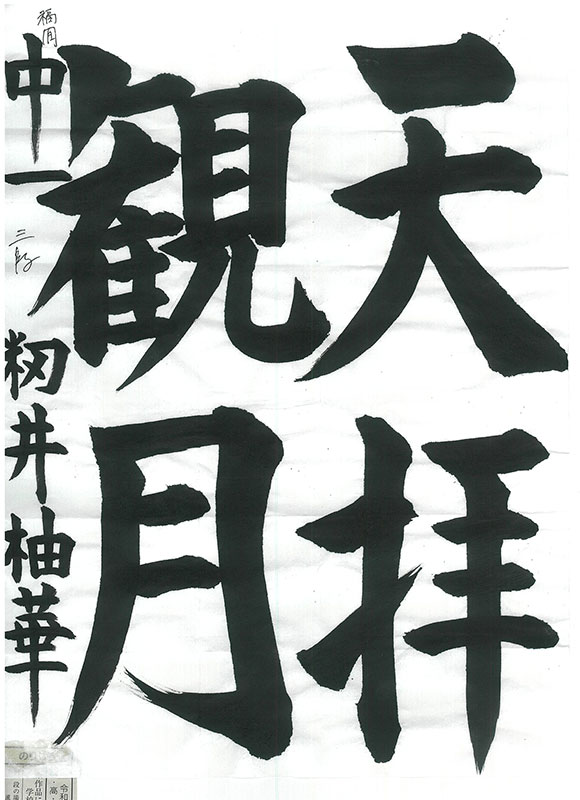 天拝
観月
中一
三段
籾井柚華